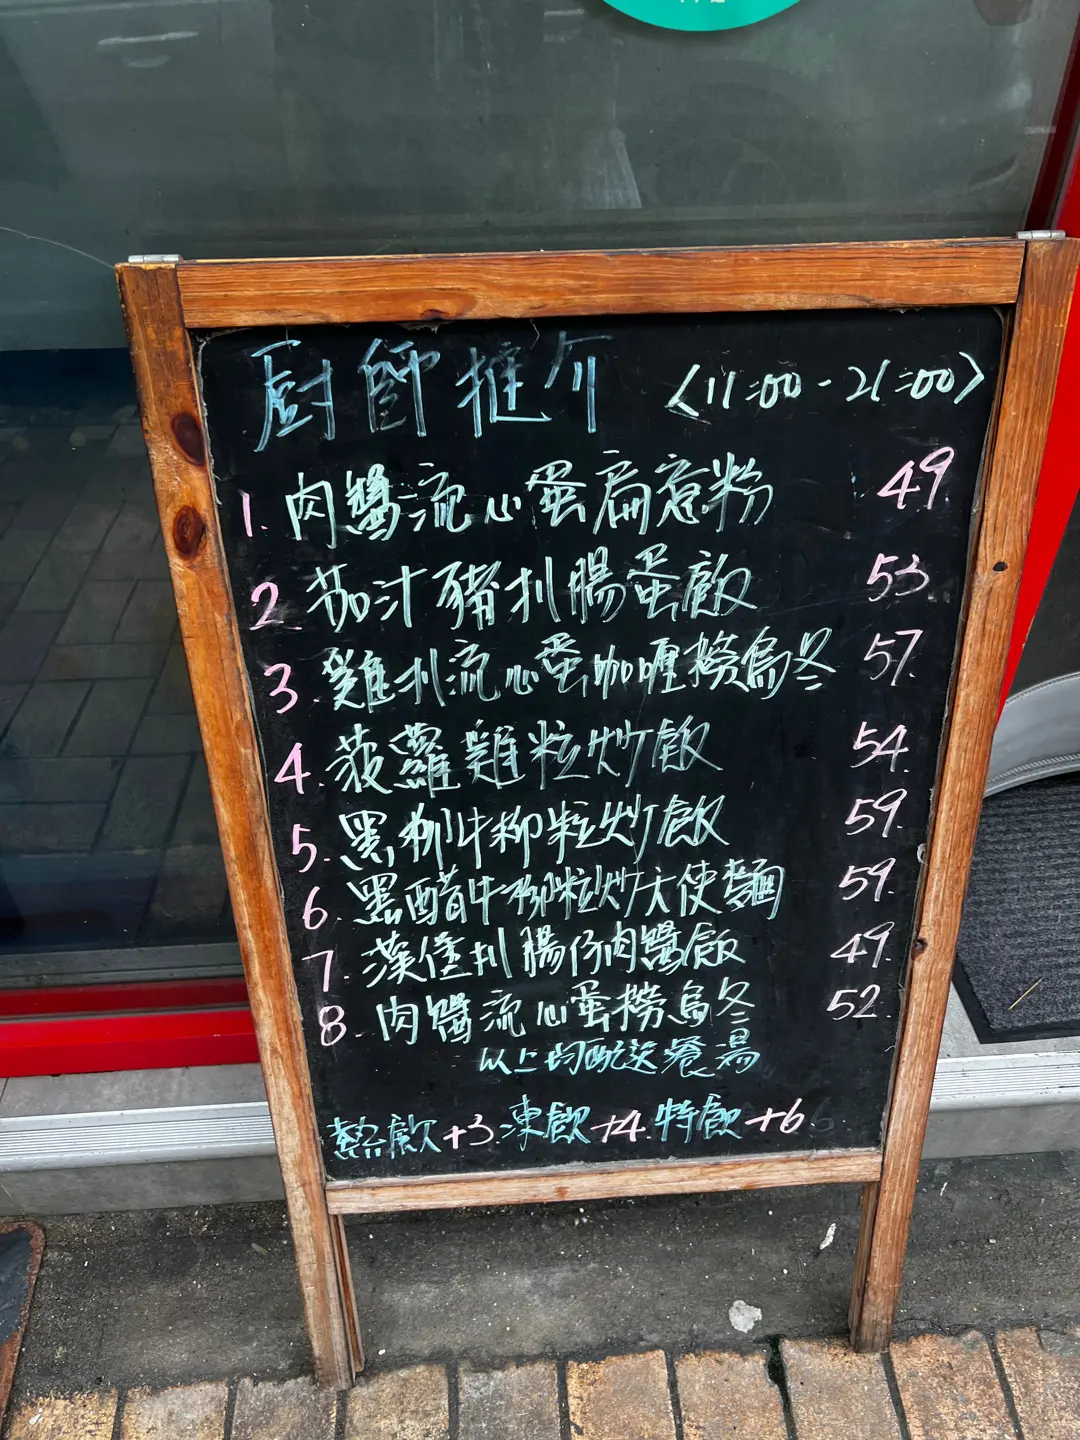 厨師推介 <11:00-21:00>
1. 肉醬流心蛋扁意粉 49.
2. 茄汁豬扒腸蛋飯 53.
3. 雞扒流心蛋咖喱撈烏冬 57.
4. 菠蘿雞粒炒飯 54.
5. 黑椒牛柳粒炒飯 59.
6. 黑醋牛柳粒炒天使麵 59.
7. 漢堡扒腸仔肉醬飯 49.
8. 肉醬流心蛋撈烏冬 52.
以上均配送餐湯
熱飲+3. 凍飲+4. 特飲+6.